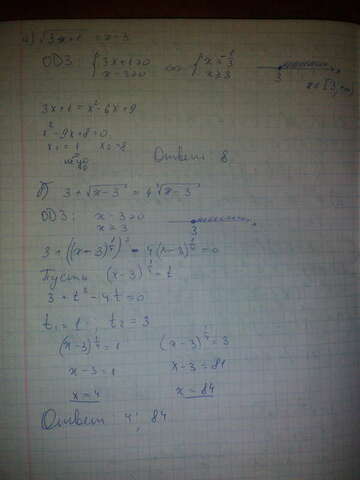 а) √3x+1 = x-3
ОДЗ: { 3x+1≥0 x-3≥0 <=> { x≥-1/3 x≥3 3 x∈[3,+∞)
3x+1 = x²-6x+9
x²-9x+8=0
x₁=1 x₂=8
не уд
Ответ: 8
б) 3+√x-3 = 4⁴√x-3
ОДЗ: x-3≥0
x≥3 3
3+((x-3)^¼)² - 4(x-3)^¼=0
Пусть (x-3)^¼=t
3+t²-4t=0
t₁=1, t₂=3
(x-3)^¼=1 (x-3)^¼=3
x-3=1 x-3=81
x=4 x=84
Ответ 4; 84